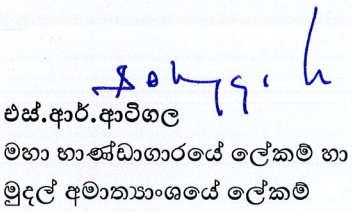 එස්.ආර්.ආටිගල
මහා භාණ්ඩාගාරයේ ලේකම් හා
මුදල් අමාත්‍යාංශයේ ලේකම්